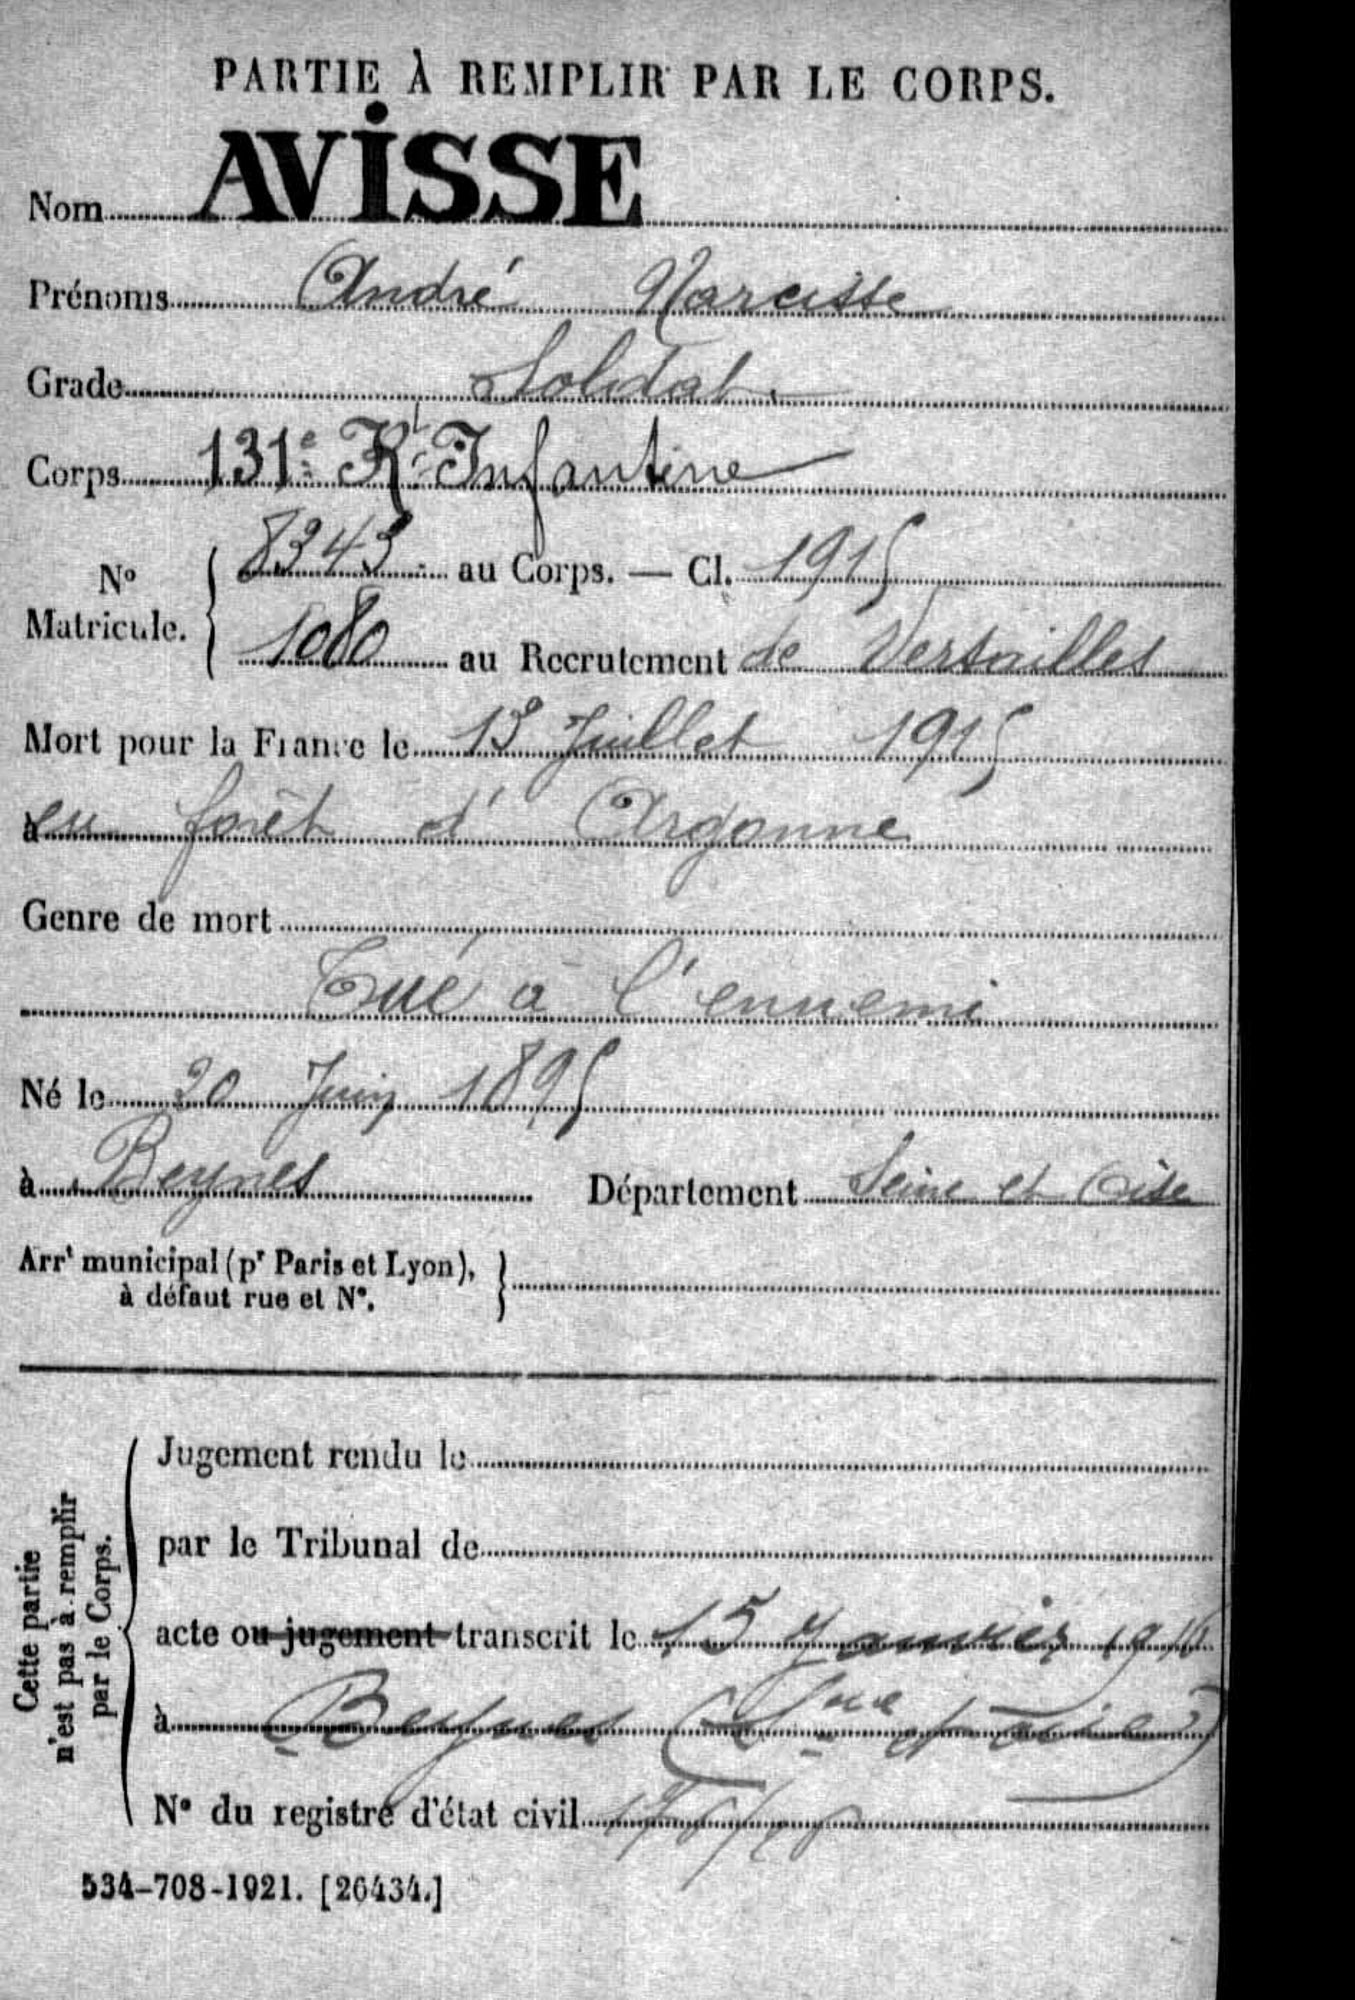 PARTIE À REMPLIR PAR LE CORPS.
Nom AVISSE
Prénoms André Narcisse
Grade Soldat.
Corps 131e Rt Infanterie
No Matricule. { 8343 au Corps. — Cl. 1915
1080 au Recrutement de Versailles
Mort pour la France le 13 Juillet 1915
à en forêt d'Argonne
Genre de mort
Tué à l'ennemi
Né le 20 Juin 1895
à Beynes Département Seine et Oise
Arrt municipal (pr Paris et Lyon), à défaut rue et No. }
Cette partie n'est pas à remplir par le Corps.
Jugement rendu le
par le Tribunal de
acte ou jugement transcrit le 15 Janvier 1916
à Beynes (Sne et Oise)
No du registre d'état civil
534-708-1921. [26434.]